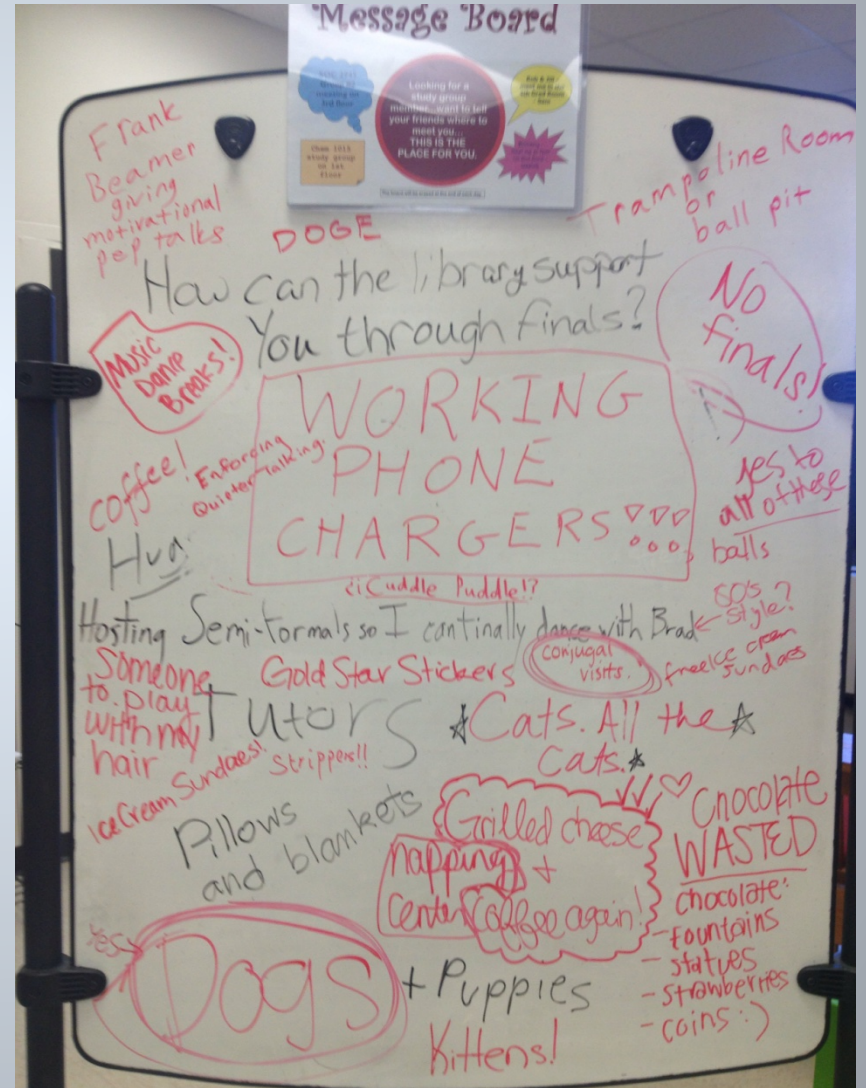 Message Board
Looking for a
study group
member...want to tell
your friends where to
meet you...
THIS IS THE
PLACE FOR YOU.
Chem 1015
study group
on 1st
floor
Frank
Beamer
giving
motivational
pep talks
DOGE
Trampoline Room
or
ball pit
How can the library support
You through finals?
No
finals!
Music
Dance
Breaks!
WORKING
PHONE
CHARGERS!!!
coffee!
Enforcing
Quieter Talking.
yes to
all of these
balls
Hug
¿¡Cuddle Puddle!?
Hosting Semi-formals so I can finally dance with Brad
50's
style?
Someone
to play
with my
hair
Gold Star Stickers
conjugal
visits.
free ice cream
sundaes
Tutors
Cats. All the
cats.
Ice Cream Sundaes!
Strippers!!
Pillows
and blankets
Grilled cheese
+
Coffee again!
napping
center
Chocolate
WASTED
chocolate:
-fountains
-statues
-strawberries
-coins :)
yes
Dogs
+ Puppies
Kittens!